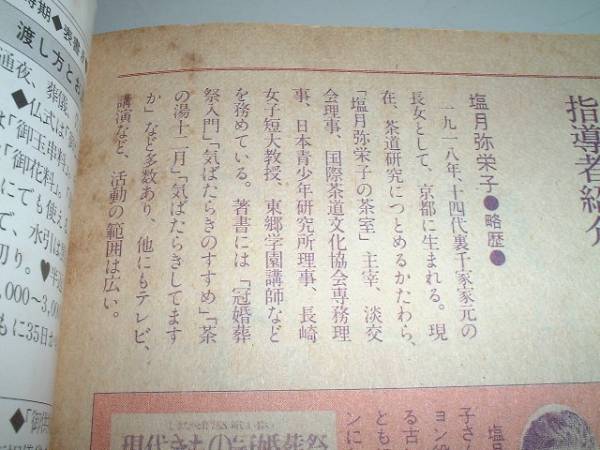 指導者紹介
塩月弥栄子●略歴●
一九一八年、十四代裏千家家元の
長女として、京都に生まれる。現
在、茶道研究につとめるかたわら、
「塩月弥栄子の茶室」主宰、淡交
会理事、国際茶道文化協会専務理
事、日本青少年研究所理事、長崎
女子短大教授、東郷学園講師など
を務めている。著書には「冠婚葬
祭入門」「気ばたらきのすすめ」「茶
の湯十二月」「気ばたらきしてます
か」など多数あり、他にもテレビ、
講演など、活動の範囲は広い。
渡し方とお
通夜、葬儀、
◆仏式は「御
「御玉串料」
「御花料」。
にでも使え
で、水引は
切り。♥半返
,000〜3,0
もに35日
◆「御供
塩月
子さん
ヨン役
る古
ともに
ンに